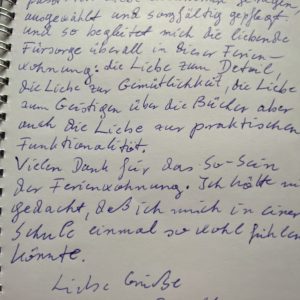 ausgewählt und sorgfältig gepflegt
und so begleitet mich die liebende
Fürsorge überall in dieser Ferien-
wohnung: die Liebe zum Detail,
die Liebe zur Gemütlichkeit, die Liebe
zum Geistigen über die Bücher aber
auch die Liebe zur praktischen
Funktionalität.
Vielen Dank für das So-Sein
der Ferienwohnung. Ich hätte
gedacht, daß ich mich in einer
Schule einmal so wohl fühlen
könnte.
Liebe Grüße